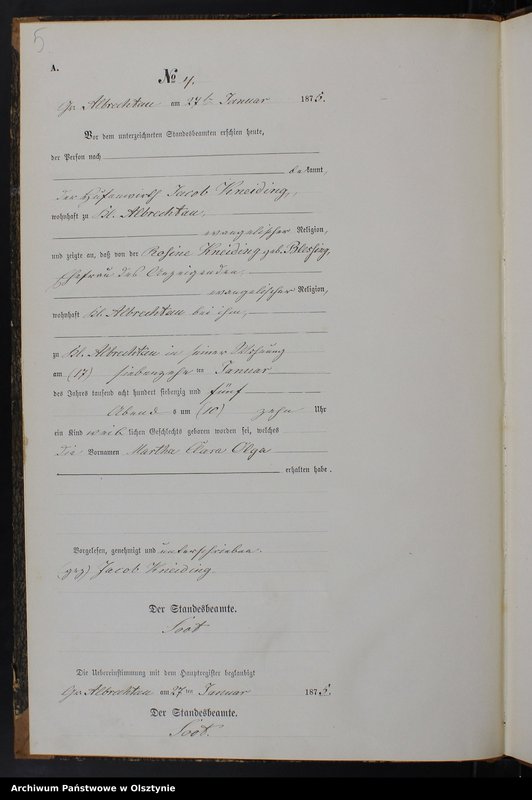 5
A.
No 4.
Gr. Albrechtau am 27ten Januar 1875.
Vor dem unterzeichneten Standesbeamten erschien heute,
der Person nach
bekannt,
der Hüfenwirth Jacob Kneiding,
wohnhaft zu Kl. Albrechtau,
evangelischer Religion,
und zeigte an, daß von der Rosine Kneiding geb. Blessing,
Ehefrau des Anzeigenden,
evangelischer Religion,
wohnhaft Kl. Albrechtau bei ihm,
zu Kl. Albrechtau in seiner Wohnung
am (17) siebenzehn ten Januar
des Jahres tausend acht hundert siebenzig und fünf
Abend s um (10) zehn Uhr
ein Kind weiblichen Geschlechts geboren worden sei, welches
die Vornamen Martha Clara Olga
erhalten habe.
Vorgelesen, genehmigt und unterschrieben.
(gez) Jacob Kneiding
Der Standesbeamte.
Die Uebereinstimmung mit dem Hauptregister beglaubigt
Gr. Albrechtau am 27ten Januar 1875.
Der Standesbeamte.
Archiwum Państwowe w Olsztynie